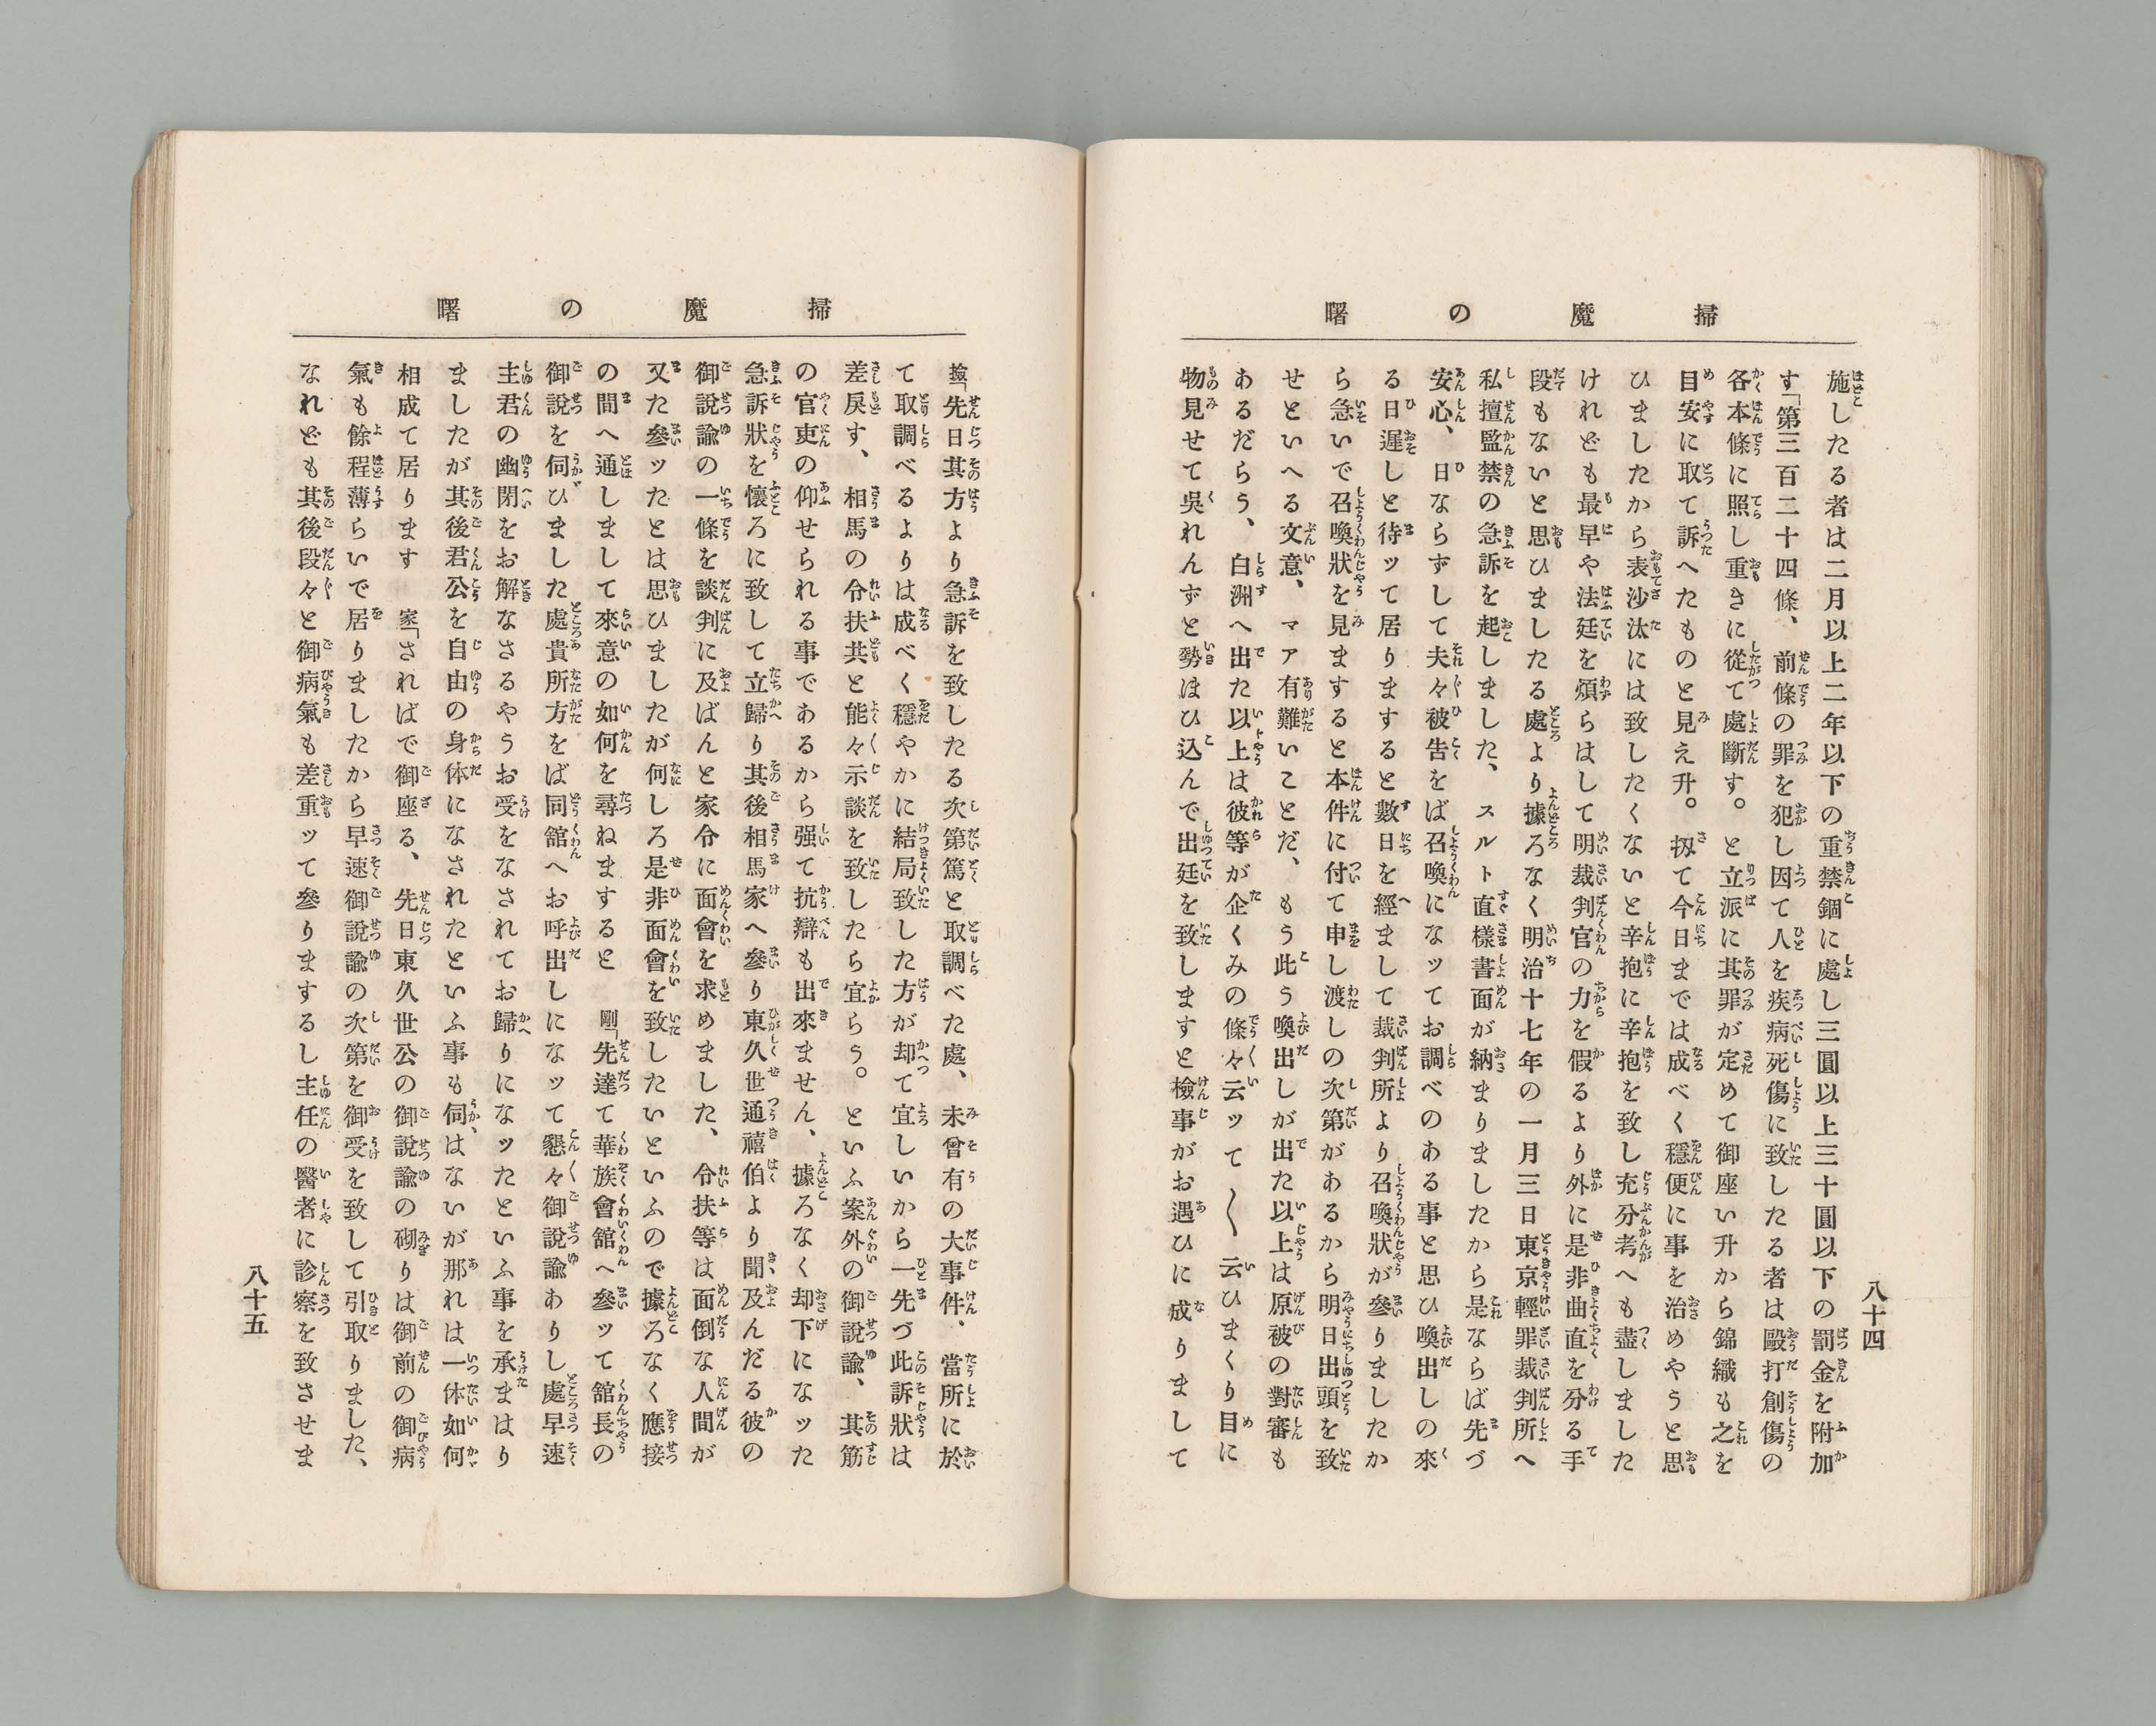 掃魔の曙
施したる者は二月以上二年以下の重禁錮に處し三圓以上三十圓以下の罰金を附加
す「第三百二十四條、前條の罪を犯し因て人を疾病死傷に致したる者は毆打創傷の
各本條に照し重きに從て處斷す。と立派に其罪が定めて御座い升から錦織も之を
目安に取て訴へたものと見え升。扨て今日までは成べく穩便に事を治めやうと思
ひましたから表沙汰には致したくないと辛抱に辛抱を致し充分考へも盡しました
けれども最早や法廷を煩らはして明裁判官の力を假るより外に是非曲直を分る手
段もないと思ひましたる處より據ろなく明治十七年の一月三日東京輕罪裁判所へ
私擅監禁の急訴を起しました、スルト直樣書面が納まりましたから是ならば先づ
安心、日ならずして夫々被告をば召喚になッてお調べのある事と思ひ喚出しの來
る日遲しと待ッて居りますると數日を經まして裁判所より召喚狀が參りましたか
ら急いで召喚狀を見ますると本件に付て申し渡しの次第があるから明日出頭を致
せといへる文意、マア有難いことだ、もう此う喚出しが出た以上は原被の對審も
あるだらう、白洲へ出た以上は彼等が企くみの條々云ッて〳〵云ひまくり目に
物見せて吳れんずと勢ほひ込んで出廷を致しますと檢事がお遇ひに成りまして
八十四
掃魔の曙
檢「先日其方より急訴を致したる次第篤と取調べた處、未曾有の大事件、當所に於
て取調べるよりは成べく穩やかに結局致した方が却て宜しいから一先づ此訴狀は
差戾す、相馬の令扶共と能々示談を致したら宜らう。といふ案外の御說諭、其筋
の官吏の仰せられる事であるから强て抗辯も出來ません、據ろなく却下になッた
急訴狀を懷ろに致して立歸り其後相馬家へ參り東久世通禧伯より聞及んだる彼の
御說諭の一條を談判に及ばんと家令に面會を求めました、令扶等は面倒な人間が
又た參ッたとは思ひましたが何しろ是非面會を致したいといふので據ろなく應接
の間へ通しまして來意の如何を尋ねますると　剛「先達て華族會館へ參ッて舘長の
御說を伺ひました處貴所方をば同舘へお呼出しになッて懇々御說諭ありし處早速
主君の幽閉をお解なさるやうお受をなされてお歸りになッたといふ事を承まはり
ましたが其後君公を自由の身体になされたといふ事も伺はないが那れは一体如何
相成て居ります　家「さればで御座る、先日東久世公の御說諭の砌りは御前の御病
氣も餘程薄らいで居りましたから早速御說諭の次第を御受を致して引取りました、
なれども其後段々と御病氣も差重ッて參りまするし主任の醫者に診察を致させま
八十五